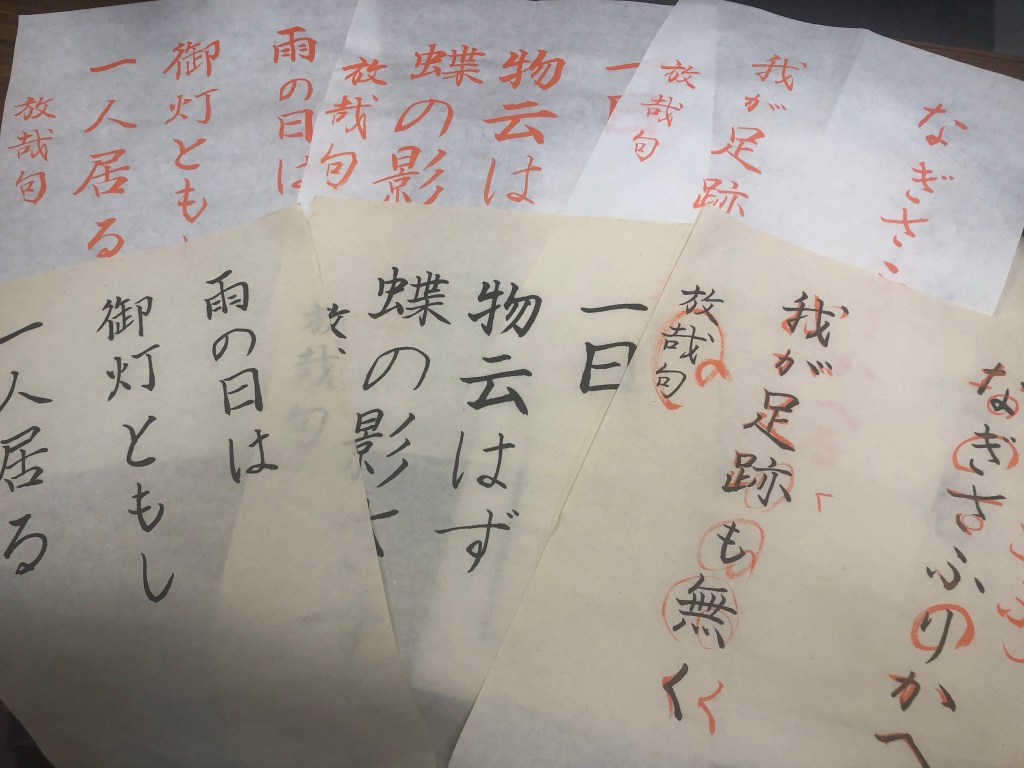 なぎさ
我が足跡
放哉句
一日
物云は
蝶の影
放哉句
雨の日は
御灯とも
一人居る
放哉句
なぎさふりかへ
我が足跡も無く
放哉句
一日
物云はず
蝶の影
放
雨の日は
御灯ともし
一人居る